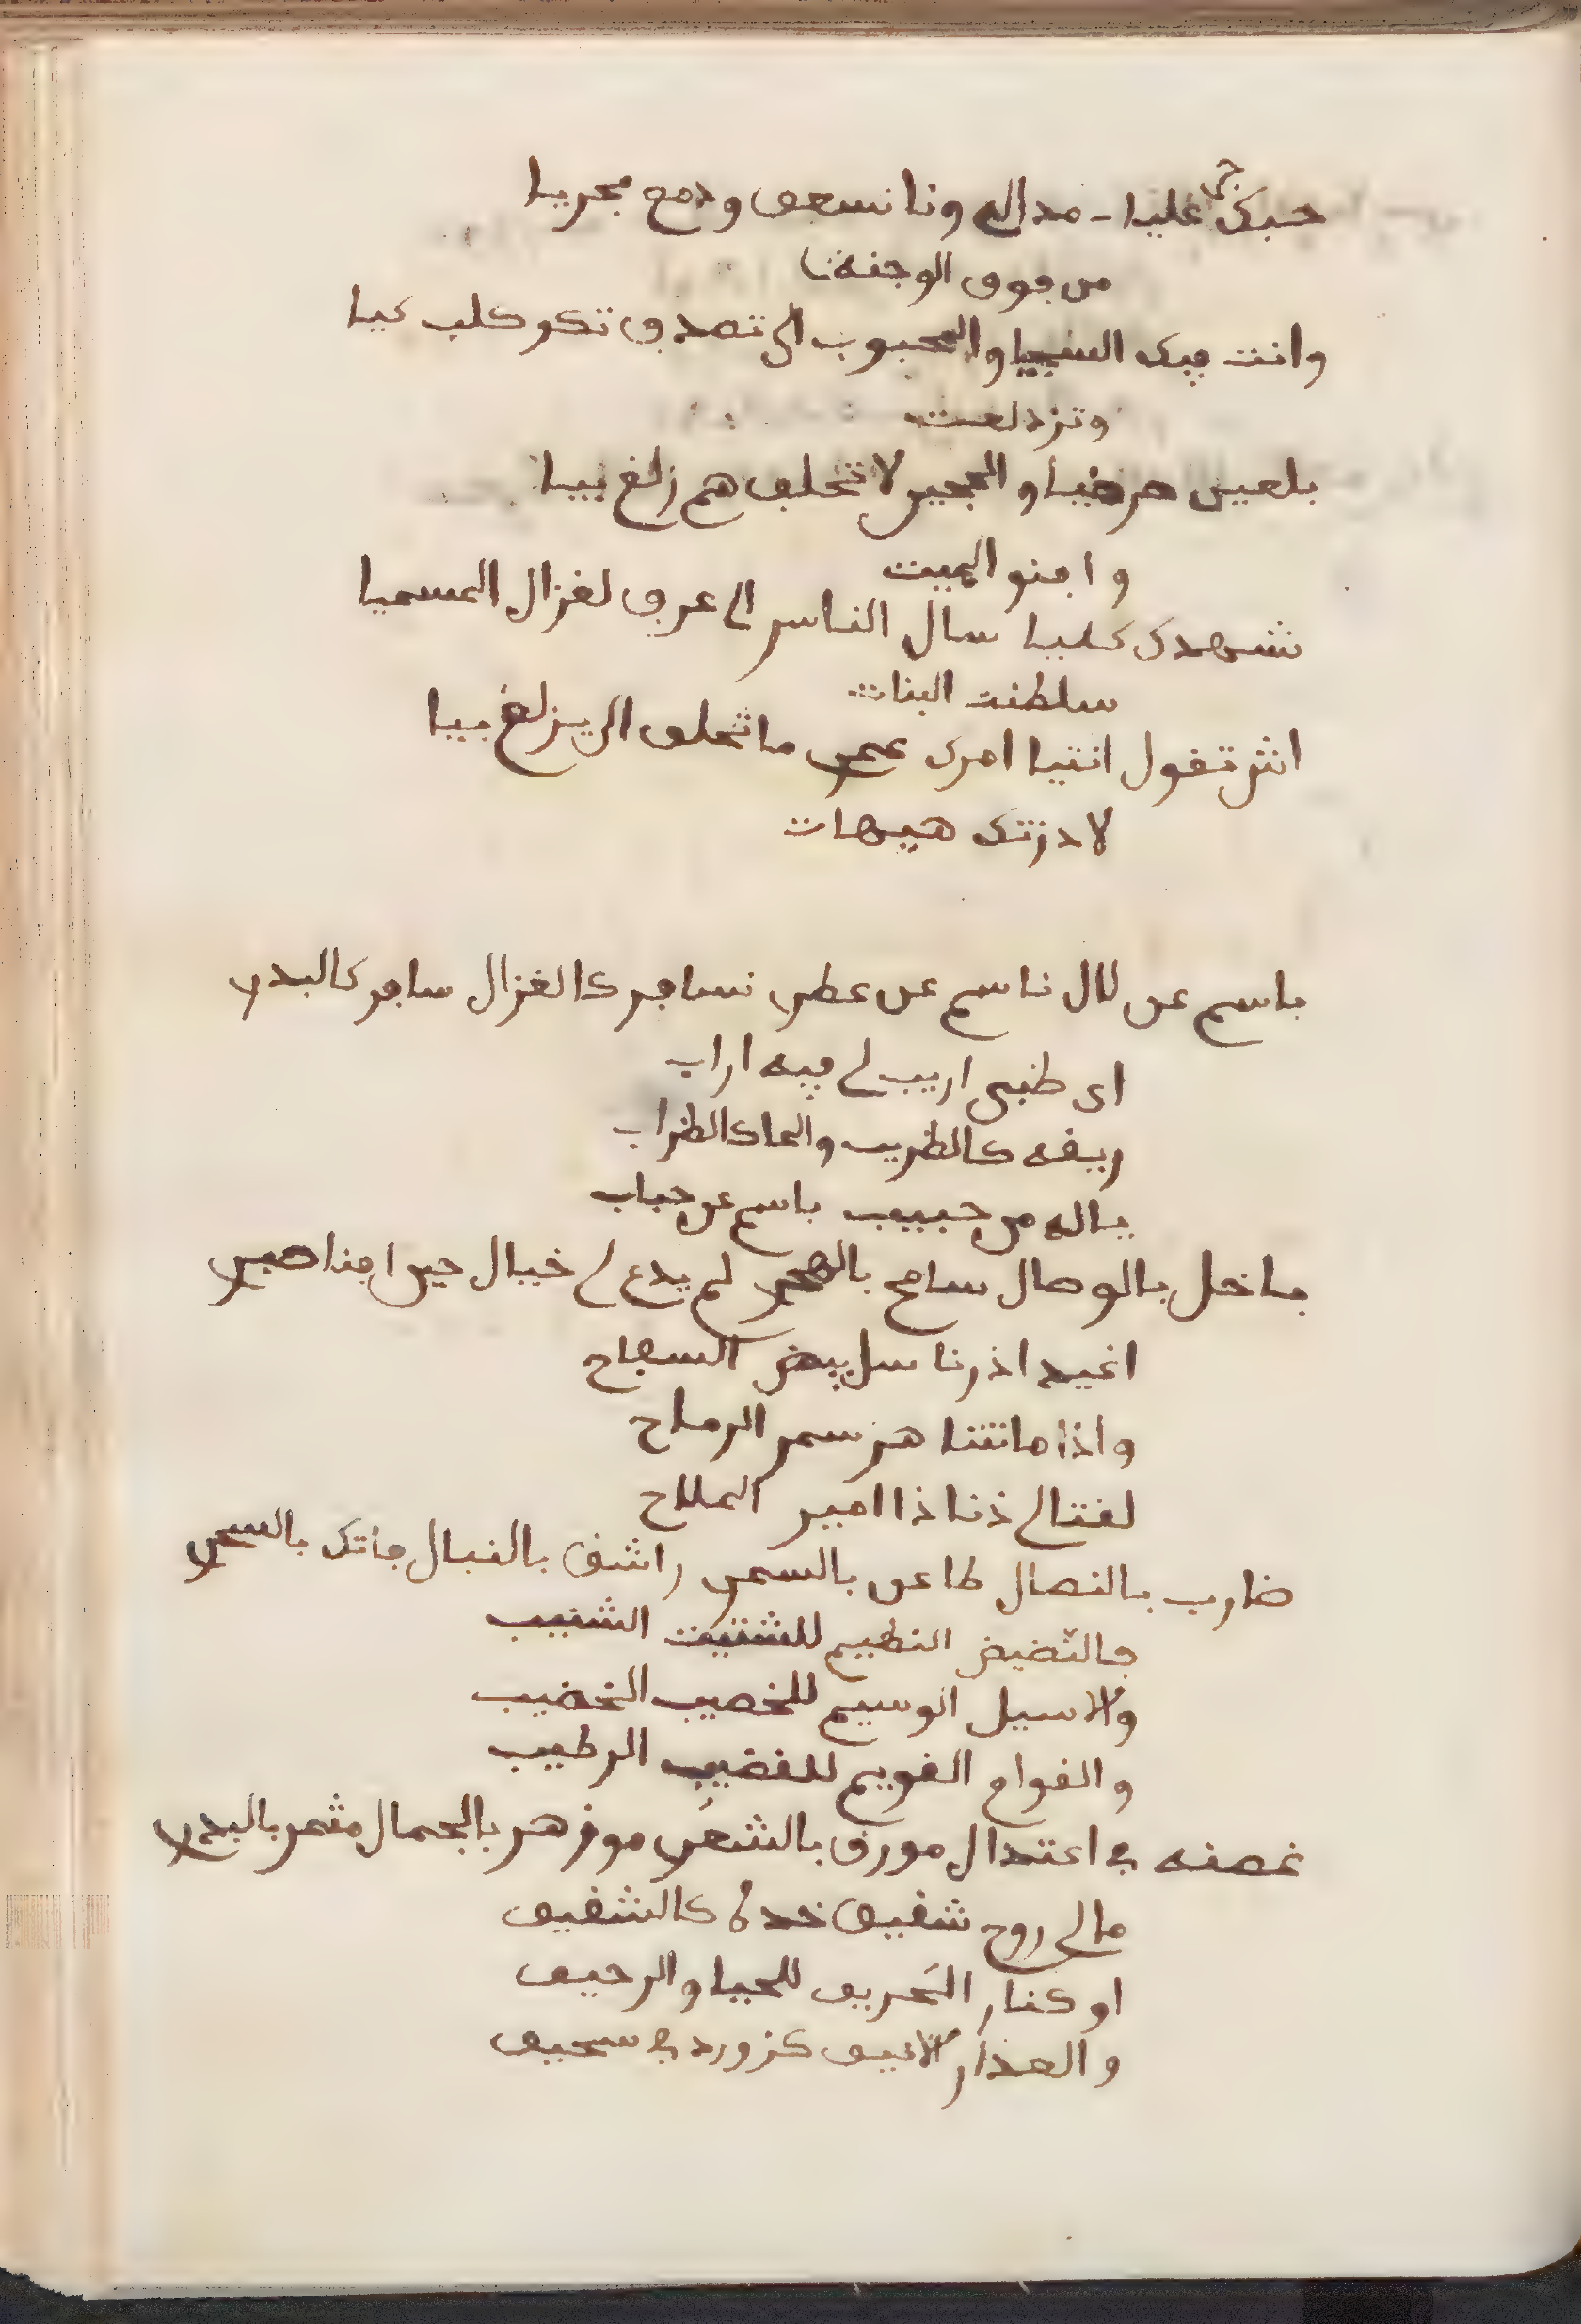 حبك جى عليا - مدالي ونا نسعى ودمع مجريا
من فوق الوجنات
وانت فيك السبيا والمحبوب الى تصدق تكو كلب عيا
وتزد لعت
بلعين مرضيا والحجير لا تحلف هم زلغ بيبا
وافنو الميت
نشهدك عليا سال الناس الى عرف لغزال المسميا
سلطنت البنات
انش تقول انتيا امرى عمر ما تحلف الى يزلغ بيبا
لا درتك هيهات
باسم عن لال ناسم عن عطر نسافر كالغزال سافر كالبدر
اى ظبى اريب لى فيه اراب
ريقه كالظريب والما كالظراب
ياله من حبيب باسم عن حباب
باخل بالوصال سامح بالهجر لم يدع لى خيال حين افنا صبر
اغيد اذ رنا سل بيض السفاح
واذا ما نتنا هز سمر الرماح
لفتالى ذنا ذا امير الملاح
ضارب بالنصال طاعن بالسمر راشق بالنبال فاتك بالسحر
فالنضيض النظيم للشتيت الشنيب
والاسيل الوسيم للخصيب الخضيب
والقوام القويم للقضيب الرطيب
غصنه في اعتدال مورق بالشعر موزهر بالجمال مثمر بالبدر
مالى روح شقيق خده كالشقيق
او كنار الحريق للحيا والرحيق
والعذار الانيق كزورد في سحيق